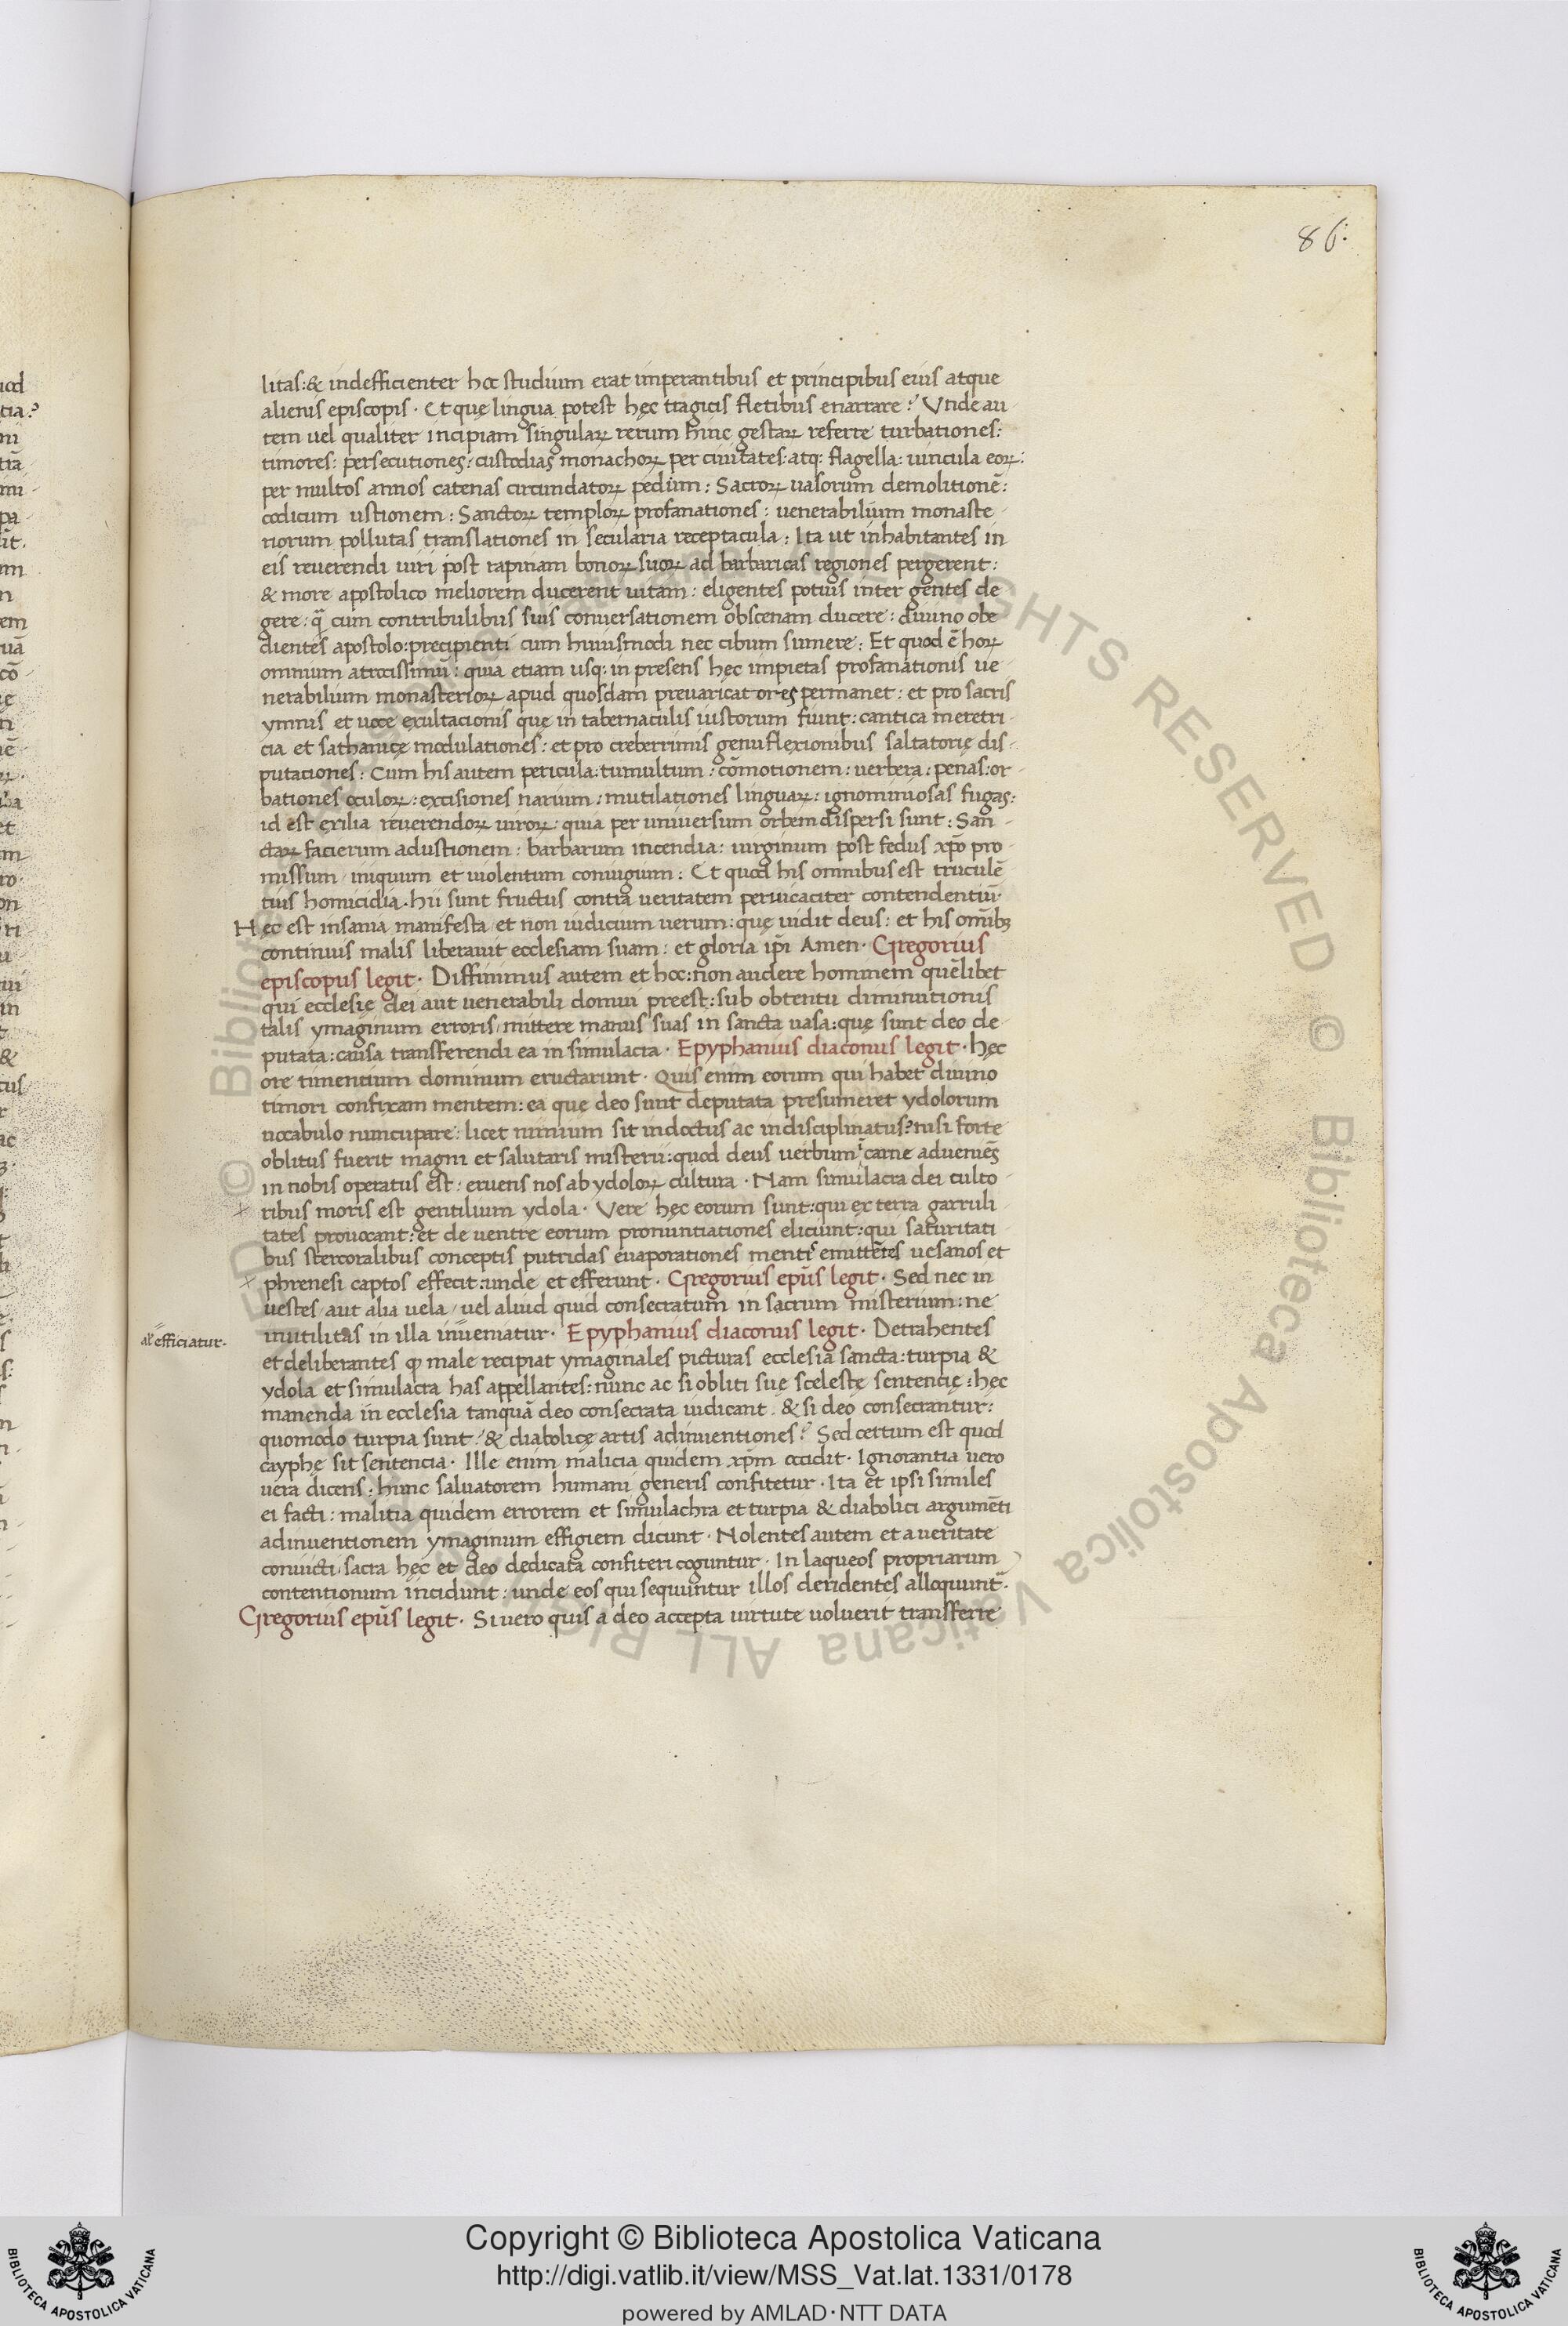 86.
litas: & indefficienter hoc studium erat imperantibus et principibus eius atque
alienis episcopis · Et quę lingua potest hęc tragicis fletibus enarrare? Vnde au
tem uel qualiter incipiam singulaꝝ rerum hinc gestaꝝ referre turbationes:
timores: persecutiones: custodias monachoꝝ per ciuitates: atq: flagella: uincula eoꝝ:
per multos annos catenas circundatoꝝ pedum: Sacroꝝ uasorum demolitionē:
codicum ustionem: Sanctoꝝ temploꝝ profanationes: uenerabilium monaste
riorum pollutas translationes in secularia receptacula: Ita ut inhabitantes in
eis reuerendi uiri post rapinam bonoꝝ suoꝝ ad barbaricas regiones pergerent:
& more apostolico meliorem ducerent uitam: eligentes potius inter gentes de
gere: q̄ cum contribulibus suis conuersationem obscenam ducere: diuino obe
dientes apostolo: precipienti cum huiusmodi nec cibum sumere: Et quod ē hoꝝ
omnium atrocissimū: quia etiam usq: in presens hęc impietas profanationis ue
nerabilium monasterioꝝ apud quosdam preuaricatores permanet: et pro sacris
ymnis et uoce exultacionis que in tabernaculis iustorum fiunt: cantica meretri
cia et sathanicę modulationes: et pro creberrimis genuflexionibus saltatorię dis
putaciones: Cum his autem pericula: tumultum: cōmotionem: uerbera: penas: or
bationes oculoꝝ: excisiones narium: mutilationes linguaꝝ: ignominiosas fugas:
id est exilia reuerendoꝝ uiroꝝ: quia per uniuersum orbem dispersi sunt: San
ctaꝝ facierum adustionem: barbarum incendia: uirginum post fedus xp̄o pro
missum iniquum et uiolentum coniugium: Et quod his omnibus est truculē
tius homicidia · hii sunt fructus contra ueritatem peruicaciter contendentiū ·
Hęc est insania manifesta et non iudicium uerum: quę uidit deus: et his omībꝫ
continuis malis liberauit ecclesiam suam: et gloria ip̄i Amen · Gregorius
episcopus legit · Diffinimus autem et hoc: non audere hominem quēlibet
qui ecclesię dei aut uenerabili domui preest: sub obtentu diminutionis
talis ymaginum erroris mittere manus suas in sancta uasa: quę sunt deo de
putata: causa transferendi ea in simulacra · Epyphanius diaconus legit · hęc
ore timentium dominum eructarunt · Quis enim eorum qui habet diuino
timori confixam mentem: ea que deo sunt deputata presumeret ydolorum
uocabulo nuncupare: licet nimium sit indoctus ac indisciplinatus? nisi forte
oblitus fuerit magni et salutaris misterii: quod deus uerbum ī carne adueniēs
in nobis operatus est: eruens nos ab ydoloꝝ cultura · Nam simulacra dei culto
ribus moris est gentilium ydola · Vere hęc eorum sunt: qui ex terra garruli
tates prouocant: et de uentre eorum pronuntiationes eliciunt: qui saturitati
bus stercoralibus conceptis putridas euaporationes menti emittētes uesanos et
phrenesi captos effecit: unde et efferunt · Gregorius ep̄us legit · Sed nec in
uestes aut alia uela uel aliud quid consecratum in sacrum misterium: ne
inutilitas in illa inueniatur · Epyphanius diaconus legit · Detrahentes
al' efficiatur ·
et deliberantes ꝙ male recipiat ymaginales picturas ecclesia sancta: turpia &
ydola et simulacra has appellantes: nunc ac si obliti suę scelestę sentencię: hęc
manenda in ecclesia tanquā deo consecrata iudicant: & si deo consecrantur:
quomodo turpia sunt? & diabolicę artis adinuentiones? Sed certum est quod
cayphe sit sentencia · Ille enim malicia quidem xp̄m occidit · Ignorantia uero
uera dicens: hunc saluatorem humani generis confitetur · Ita et ipsi similes
ei facti: malitia quidem errorem et simulachra et turpia & diabolici argumēti
adinuentionem ymaginum effigiem dicunt · Nolentes autem et a ueritate
conuicti sacra hęc et deo dedicata confiteri coguntur · In laqueos propriarum
contentionum incidunt: unde eos qui sequuntur illos deridentes alloquunt̄ ·
Gregorius ep̄us legit · Si uero quis a deo accepta uirtute uoluerit transferre
Copyright © Biblioteca Apostolica Vaticana
http://digi.vatlib.it/view/MSS_Vat.lat.1331/0178
powered by AMLAD·NTT DATA
BIBLIOTECA APOSTOLICA VATICANA
BIBLIOTECA APOSTOLICA VATICANA